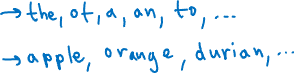 → the, of, a, an, to, ...
→ apple, orange, durian, ...